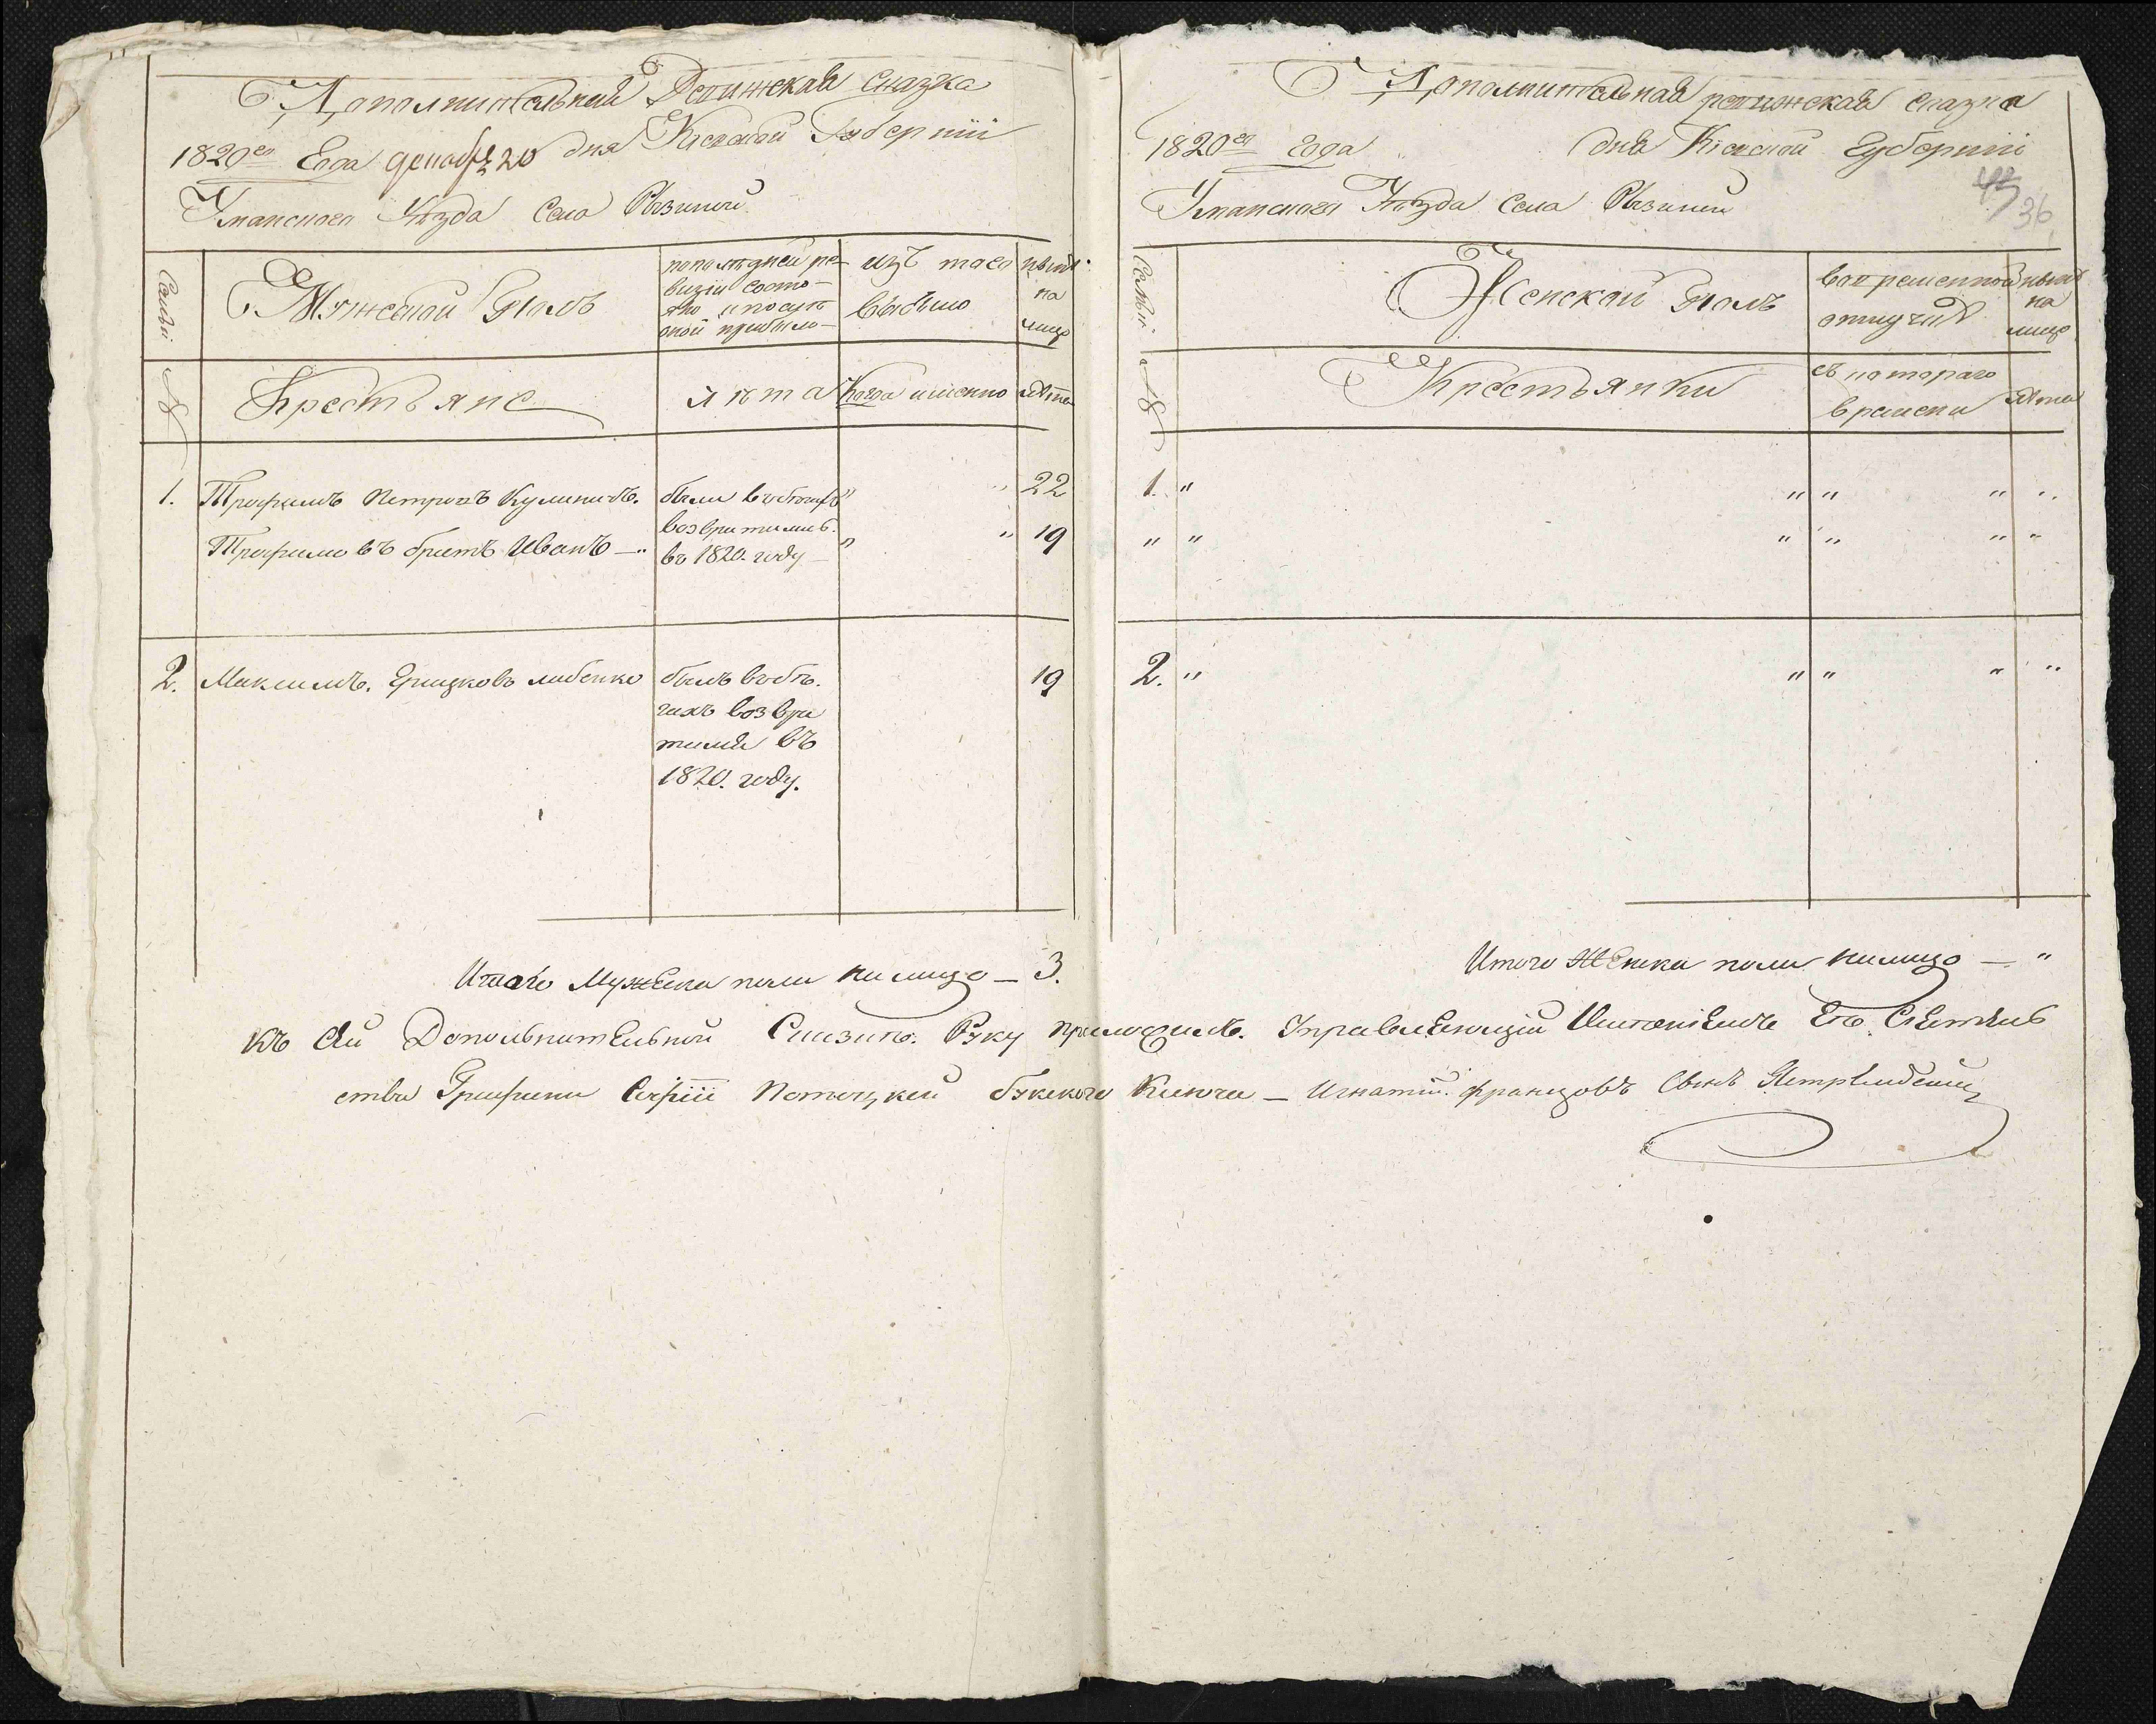 Дополнительная Ревижская сказка
1820го Года декабря 20 дня Кіевской Губерніи
Уманского Уѣзда Села Рызиной
Семьи
Мужеской Полъ
по последней ре-
визіи состо-
яло и после
оной прибыло
изъ того
выбыло
нынѣ
на
лицо
№
Крестьяне
лѣта
Когда именно
лѣта
1. Трофимъ Петровъ Кулиничъ. были въ бегахъ " " 22
возвратились.
Трофимовъ братъ Иванъ — " въ 1820. году — " " 19
2. Максимъ. Грицковъ бывъ въ бѣ- 19
гахъ возвра
тился въ
1820. году.
Итого Мужеска пола на лицо — 3.
Дополнительная ревижская сказка
1820го Года дня Кіевской Губерніи
Уманского Уѣзда Села Рызиной
36
Семьи
Женской Полъ
во временной
отлучкѣ
нынѣ
на
лицо
№
Крестьянки
съ котораго
времени
лѣта
1. " " " " "
" " " " " "
2. " " " " "
Итого Женска пола на лицо — "
Къ сей Дополнительной Сказкѣ Руку приложилъ. Управляющій Имѣніемъ Ея Сіятель
ства Графини Софіи Потоцкой Букского Ключа — Игнатій. Францовъ Сынъ